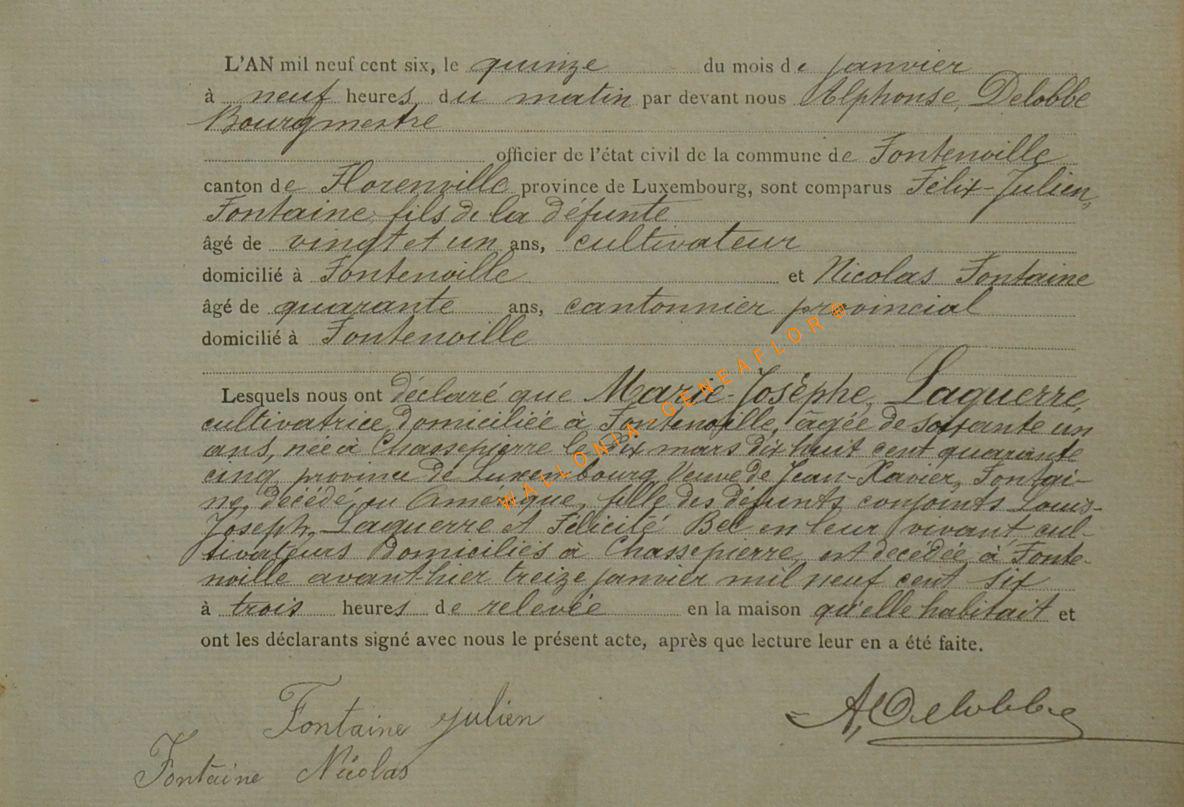 L'AN mil neuf cent six, le quinze du mois de janvier
à neuf heures, du matin par devant nous Alphonse Delobbe
Bourgmestre
officier de l'état civil de la commune de Fontenoille
canton de Florenville province de Luxembourg, sont comparus Félix-Julien,
Fontaine, fils de la défunte
âgé de vingt et un ans, cultivateur
domicilié à Fontenoille et Nicolas Fontaine
âgé de quarante ans, cantonnier provincial
domicilié à Fontenoille
Lesquels nous ont déclaré que Marie-Josèphe, Laguerre,
cultivatrice, domiciliée à Fontenoille, âgée de soixante un
ans, née à Chassepierre le dix mars dix huit cent quarante
cinq, province de Luxembourg, Veuve de Jean-Xavier, Fontai-
ne, décédé en Amérique, fille des défunts conjoints Louis-
Joseph, Laguerre et Félicité Bec en leur vivant cul-
tivateurs domiciliés à Chassepierre, est décédée à Fonte-
noille avant-hier treize janvier mil neuf cent six
à trois heures de relevée en la maison qu'elle habitait et
ont les déclarants signé avec nous le présent acte, après que lecture leur en a été faite.
WALLONIA-GENEAFLOR®
Fontaine Julien
A, Delobbe
Fontaine Nicolas